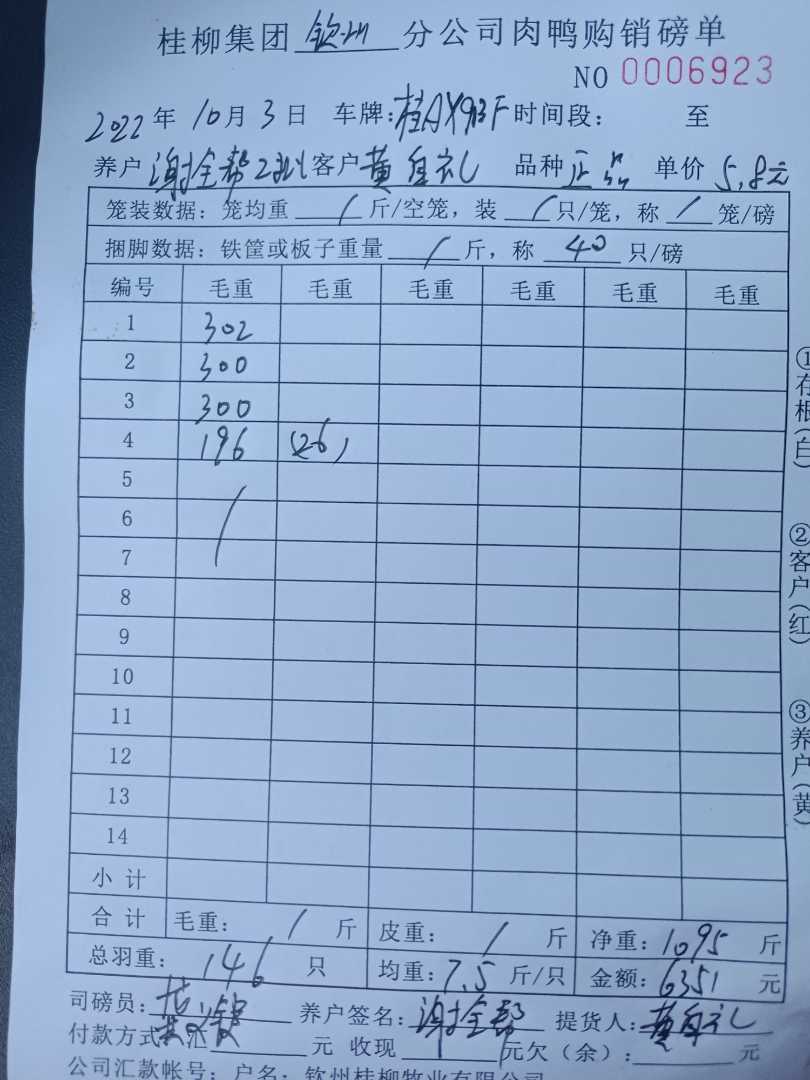 桂柳集团 钦州 分公司肉鸭购销磅单
NO 0006923
2022年10月3日 车牌:桂AY913F 时间段: 至
养户 谢全帮 客户 黄自礼 品种 正品 单价 5.8元
笼装数据:笼均重 / 斤/空笼,装 / 只/笼,称 / 笼/磅
捆脚数据:铁筐或板子重量 / 斤,称 40 只/磅
编号 毛重 毛重 毛重 毛重 毛重 毛重
1 302
2 300
3 300
4 196 (26)
5
6 /
7
8
9
10
11
12
13
14
小计
合计 毛重: / 斤 皮重: / 斤 净重:1095 斤
总羽重: 146 只 均重:7.5 斤/只 金额:6351 元
司磅员: 养户签名:谢全帮 提货人:黄自礼
付款方式:汇 元 收现 元欠(余): 元
公司汇款帐号:户名:钦州桂柳牧业有限公司
①存根(白)
②客户(红)
③养户(黄)